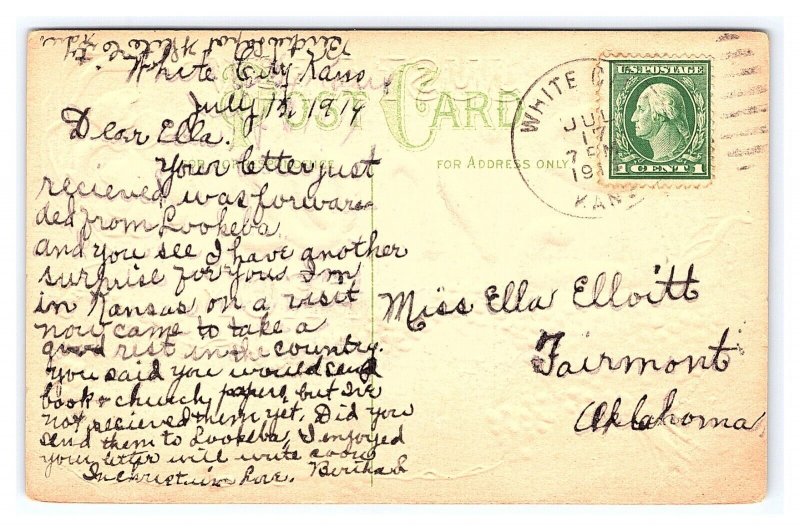 White City Kans.
July 15, 1914
Dear Ella.
Your letter just
recieved, was forwar-
ded from Lookeba
and you see I have another
surprise for you. I'm
in Kansas on a visit
now came to take a
good rest in the country.
You said you would send
book & church papers, but I've
not recieved them yet. Did you
send them to Lookeba, I enjoyed
your letter will write soon
In Christian love.
POST CARD
FOR ADDRESS ONLY
WHITE C
JUL
17
191
KANS
U.S. POSTAGE
1 CENT 1
Miss Ella Elloitt
Fairmont
Oklahoma